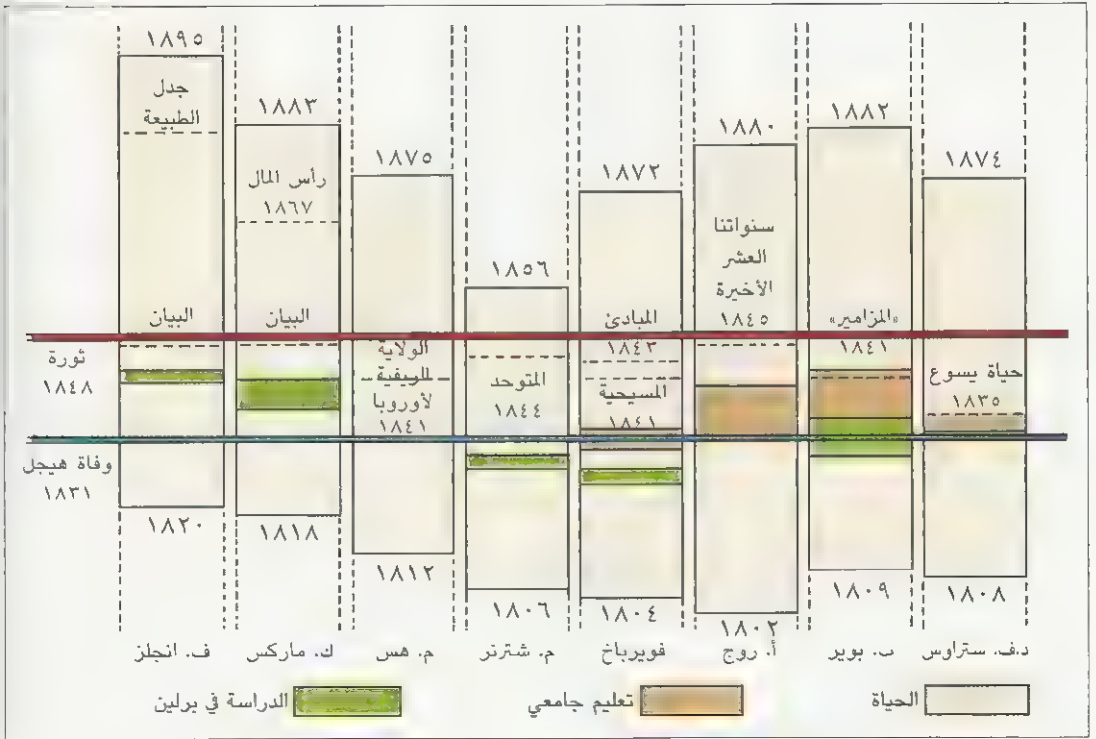 ١٨٧٤
حياة يسوع
١٨٣٥
١٨٠٨
د.ف. ستراوس
١٨٨٢
«المزامير»
١٨٤١
١٨٠٩
ب. بوير
١٨٨٠
سنواتنا
العشر
الأخيرة
١٨٤٥
١٨٠٢
أ. روج
١٨٧٢
المبادئ
١٨٤٣
المسيحية
١٨٤١
١٨٠٤
فويرباخ
١٨٥٦
المتوحد
١٨٤٤
١٨٠٦
م. شترنر
١٨٧٥
الولاية
الريفية
لأوروبا
١٨٤١
١٨١٢
م. هس
١٨٨٣
رأس المال
١٨٦٧
البيان
١٨١٨
ك. ماركس
١٨٩٥
جدل
الطبيعة
البيان
١٨٢٠
ف. انجلز
ثورة
١٨٤٨
وفاة هيجل
١٨٣١
الحياة
تعليم جامعي
الدراسة في برلين